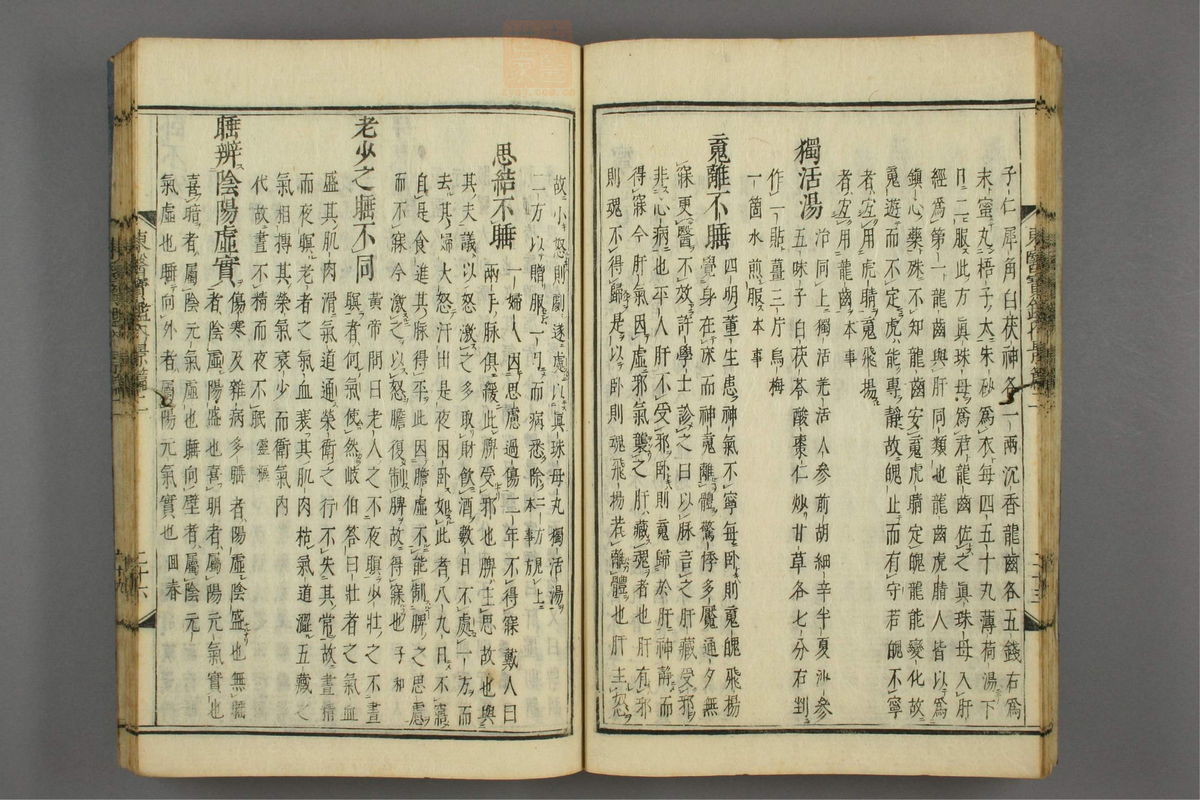 子仁犀角白茯神各一兩沉香龍齒各五錢右爲
末蜜丸梧子大朱砂爲衣每四五十丸薄荷湯下
日二服此方眞珠母爲君龍齒佐之眞珠母入肝
經爲第一龍齒與肝同類也龍齒虎睛人皆以爲
鎭心藥殊不知龍齒安魂虎睛定魄龍能變化故
魂遊而不定虎能專靜故魄止而有守若魄不寧
者宜用虎睛魂飛揚
者宜用龍齒本事
獨活湯 治同上獨活羌活人參前胡細辛半夏沙參
五味子白茯苓酸棗仁炒甘草各七分右剉
作一貼薑三片烏梅
一箇水煎服本事
魂離不睡 四明董生患神氣不寧每臥則魂魄飛揚
覺身在床而神魂離體驚悸多魘通夕無
寐更醫不效許學士診之曰以脉言之肝藏受邪
非心病也平人肝不受邪臥則魂歸於肝神靜而
得寐今肝氣因虛邪氣襲之肝藏魂者也肝有邪
則魂不得歸是以臥則魂飛揚若離體也肝主怒
故小怒則劇遂處以眞珠母丸獨活湯
二方以贈服一月而病悉除本事方二方見上
思結不睡 一婦人因思慮過傷二年不得寐戴人曰
兩手脉俱緩此脾受邪也脾主思故也與
其夫議以怒激之多取財飮酒數日不處一方而
去其婦大怒汗出是夜困臥如此者八九日不寤
自是食進其脉得平此因膽虛不能制脾之思慮
而不寐今激之以怒膽復制脾故得寐也子和
老少之睡不同 黃帝問曰老人之不夜瞑少壯之不晝
瞑者何氣使然岐伯答曰壯者之氣血
盛其肌肉滑氣道通榮衛之行不失其常故晝精
而夜瞑老者之氣血衰其肌肉枯氣道澀五藏之
氣相搏其榮氣衰少而衛氣內
代故晝不精而夜不眠靈樞
睡辨陰陽虛實 傷寒及雜病多睡者陽虛陰盛也無睡
者陰虛陽盛也喜明者屬陽元氣實也
喜暗者屬陰元氣虛也睡向壁者屬陰元
氣虛也睡向外者屬陽元氣實也回春